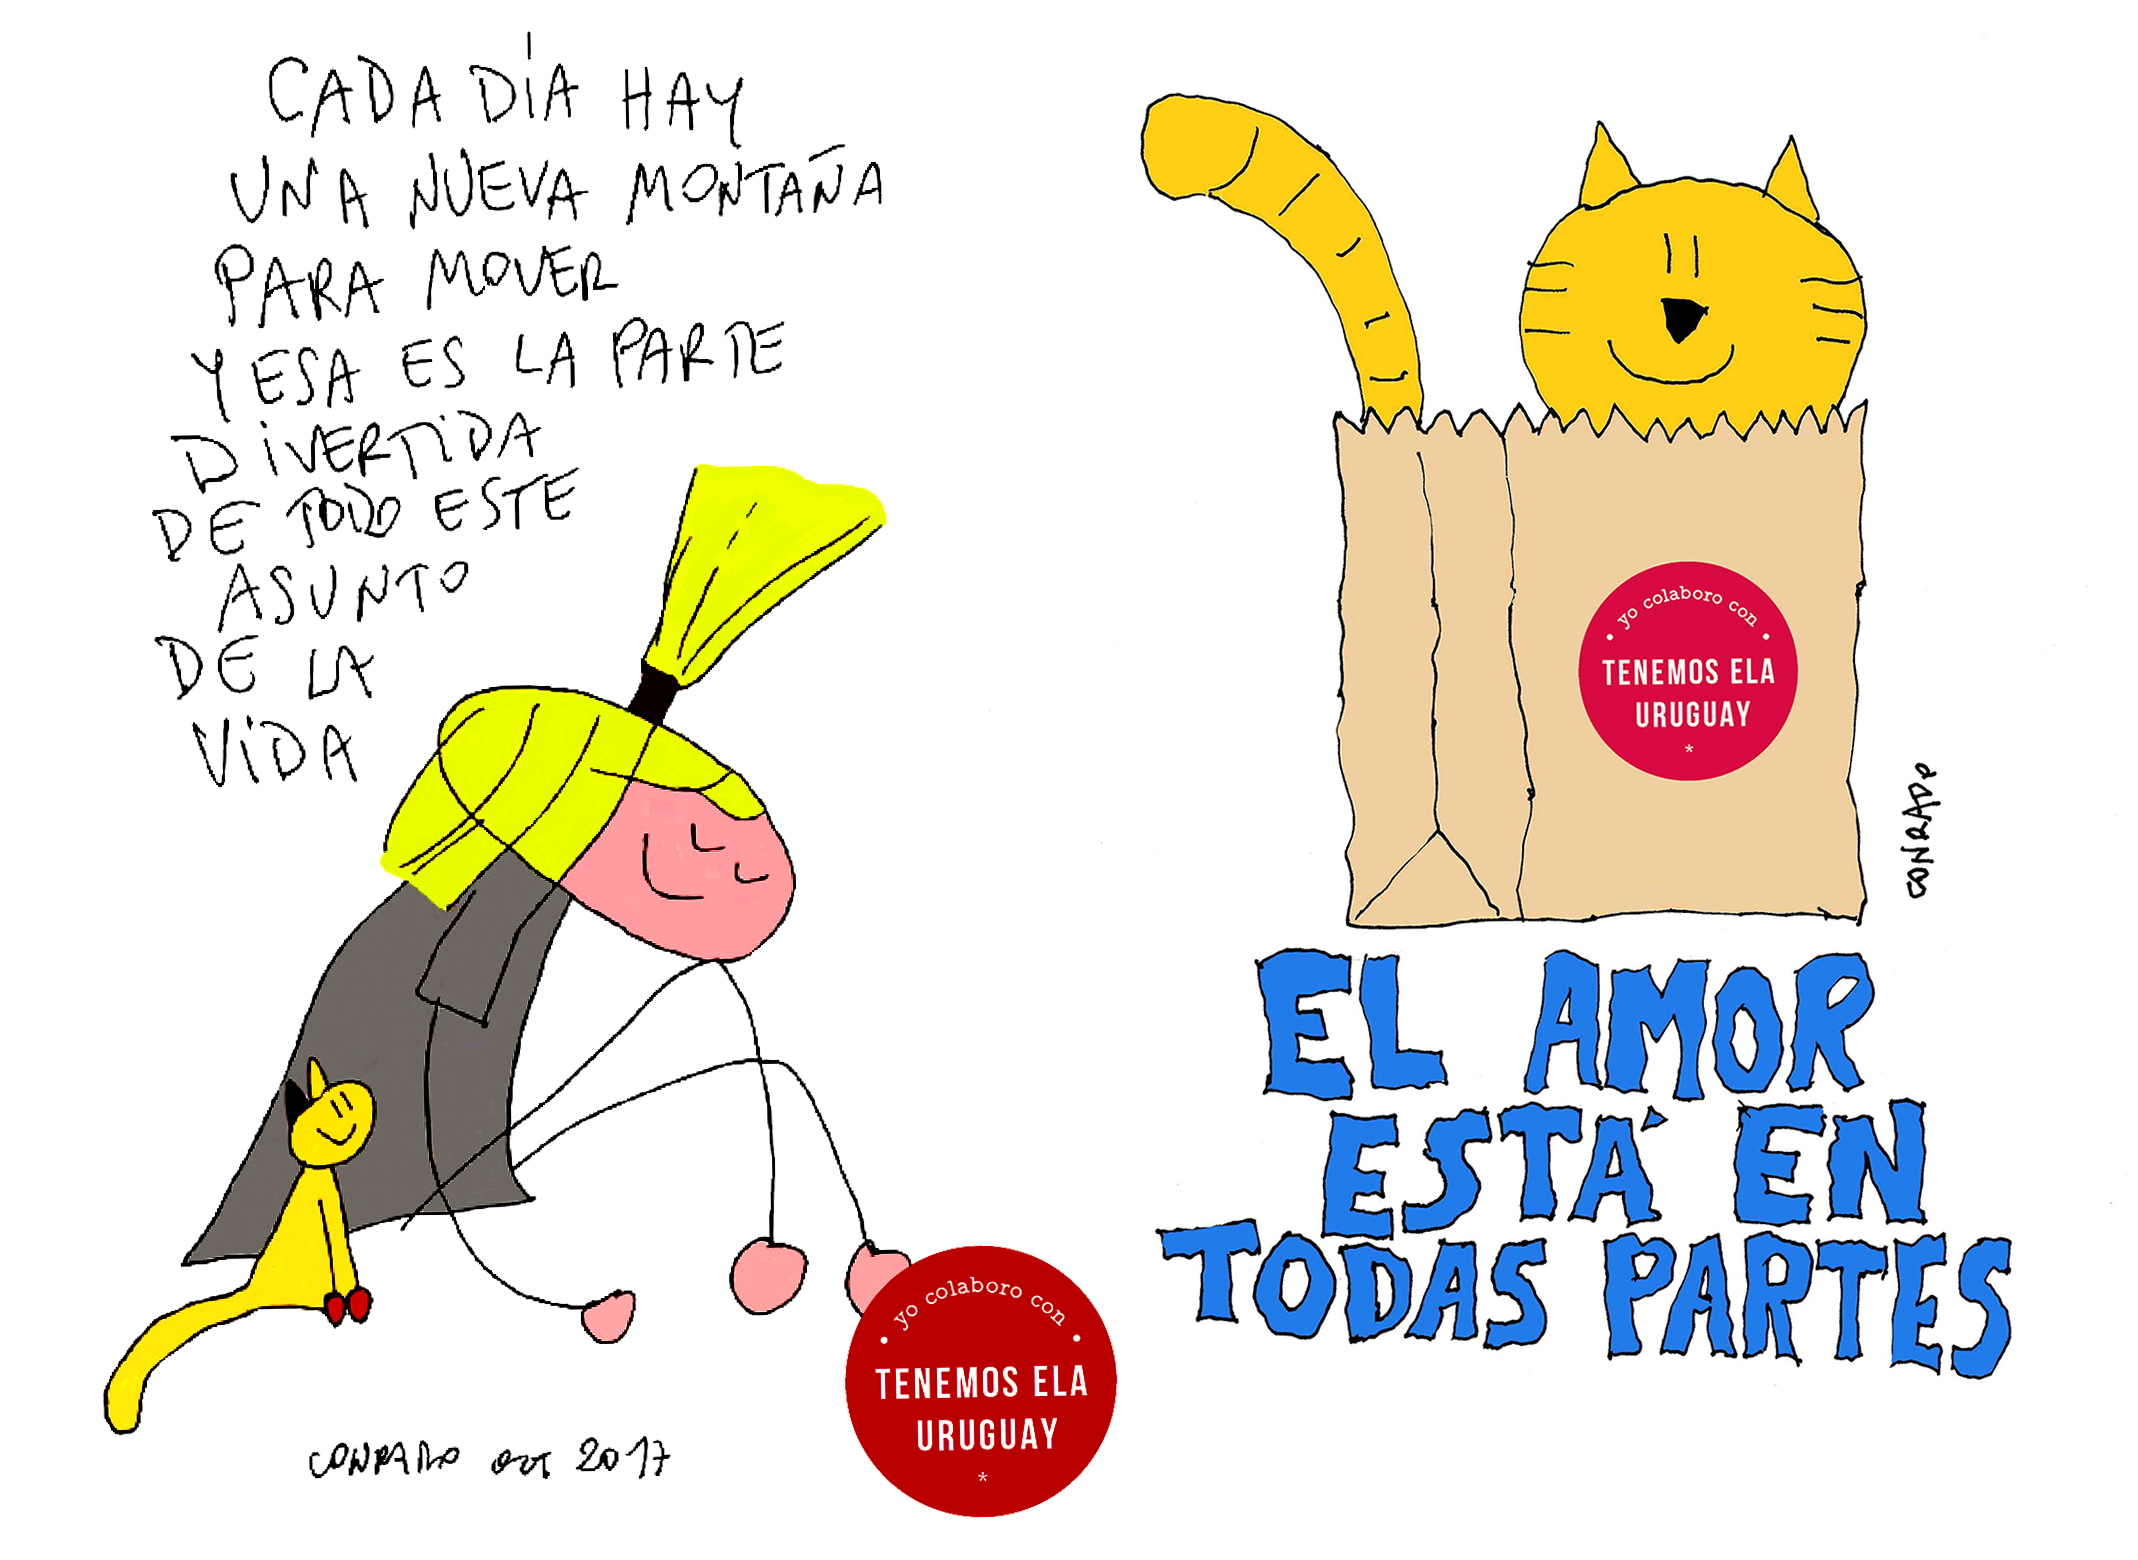 CADA DÍA HAY
UNA NUEVA MONTAÑA
PARA MOVER
Y ESA ES LA PARTE
DIVERTIDA
DE TODO ESTE
ASUNTO
DE LA
VIDA
CONRADO OCT 2017
• yo colaboro con •
TENEMOS ELA
URUGUAY
*
• yo colaboro con •
TENEMOS ELA
URUGUAY
*
CONRADO
EL AMOR
ESTÁ EN
TODAS PARTES